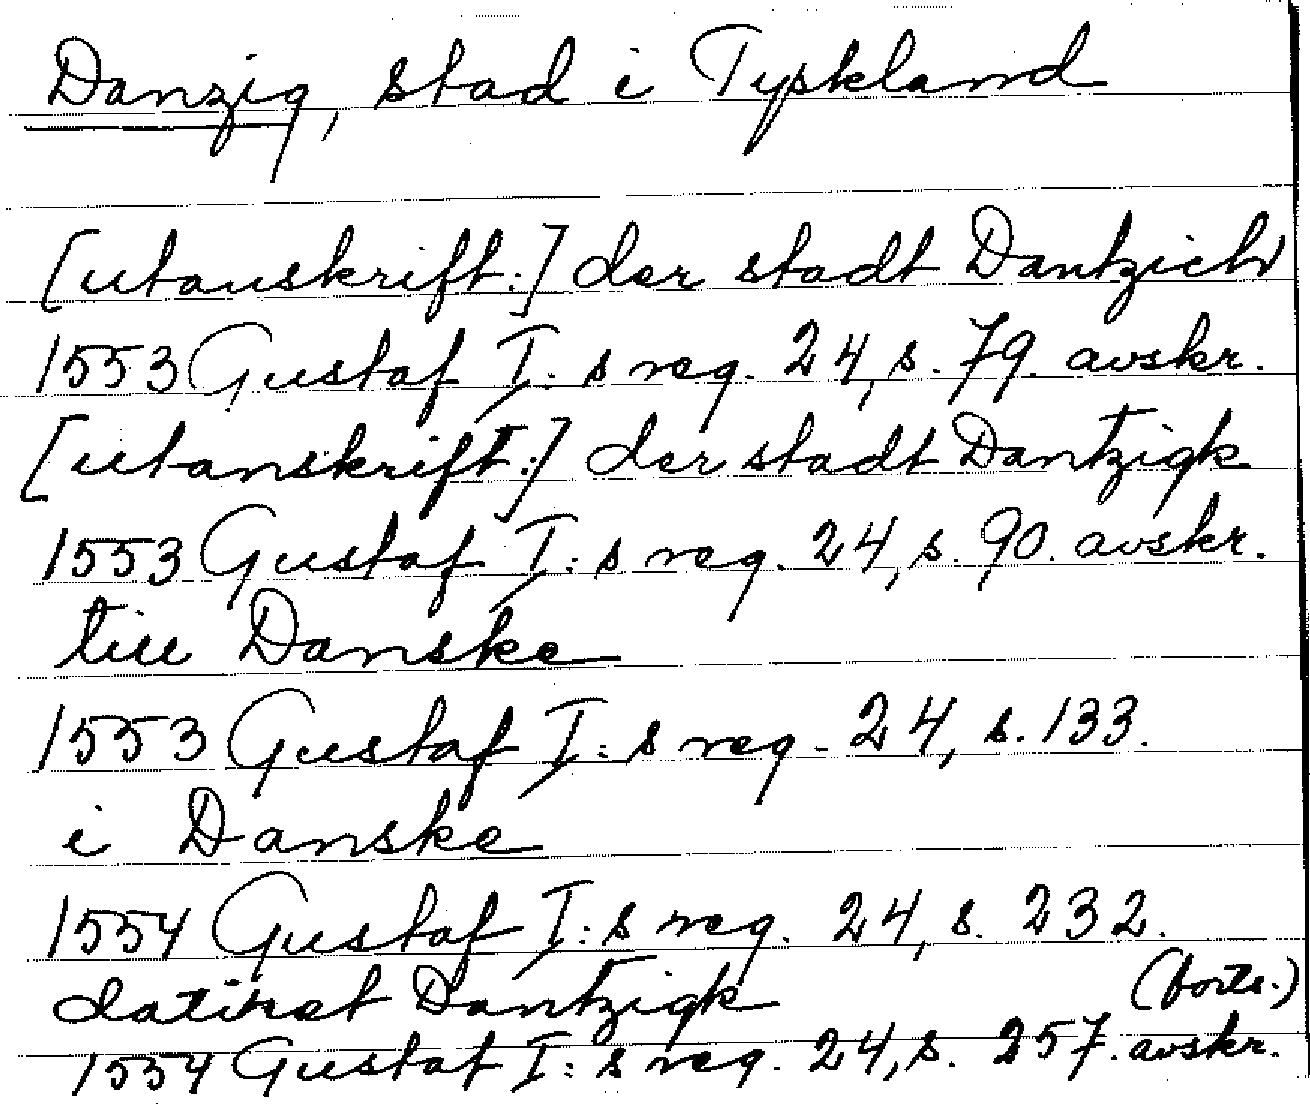 Danzig, stad i Tyskland
[utanskrift:] der stadt Dantzich
1553 Gustaf I:s reg. 24, s. 79. avskr.
[utanskrift:] der stadt Dantzigk
1553 Gustaf I:s reg. 24, s. 90. avskr.
till Danske
1553 Gustaf I:s reg. 24, s. 133.
i Danske
1554 Gustaf I:s reg. 24, s. 232.
datirat Dantzigk (forts.)
1554 Gustaf I:s reg. 24, s. 257. avskr.